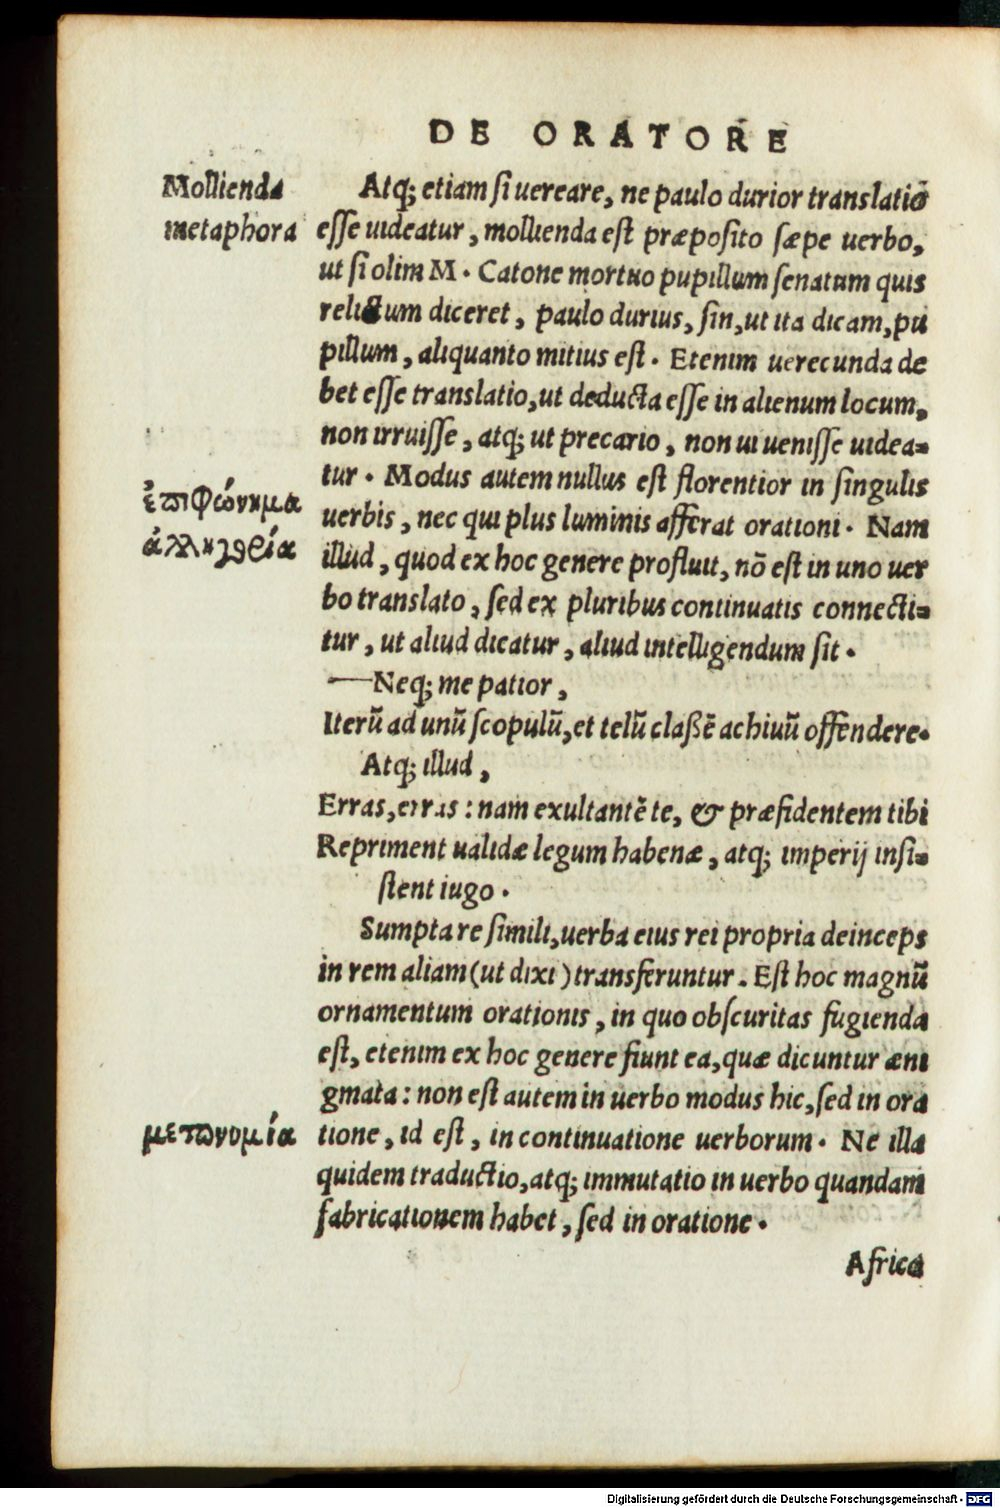 DE ORATORE
Mollienda
metaphora
Atq; etiam si uereare, ne paulo durior translatio
esse uideatur, mollienda est præposito sæpe uerbo,
ut si olim M. Catone mortuo pupillum senatum quis
relictum diceret, paulo durius, sin, ut ita dicam, pu
pillum, aliquanto mitius est. Etenim uerecunda de
bet esse translatio, ut deducta esse in alienum locum,
non irruisse, atq; ut precario, non ui uenisse uidea-
tur. Modus autem nullus est florentior in singulis
ἐπιφώνημα
uerbis, nec qui plus luminis afferat orationi. Nam
illud, quod ex hoc genere profluit, nō est in uno uer
bo translato, sed ex pluribus continuatis connecti-
tur, ut aliud dicatur, aliud intelligendum sit.
—Neq; me patior,
Iterū ad unū scopulū, et telū classē achiuū offendere.
Atq; illud,
Erras, erras: nam exultantē te, & præfidentem tibi
Repriment ualidæ legum habenæ, atq; imperij insi-
stent iugo.
Sumpta re simili, uerba eius rei propria deinceps
in rem aliam (ut dixi) transferuntur. Est hoc magnū
ornamentum orationis, in quo obscuritas fugienda
est, etenim ex hoc genere fiunt ea, quæ dicuntur æni
gmata: non est autem in uerbo modus hic, sed in ora
μετωνομία
tione, id est, in continuatione uerborum. Ne illa
quidem traductio, atq; immutatio in uerbo quandam
fabricationem habet, sed in oratione.
Africa
Digitalisierung gefördert durch die Deutsche Forschungsgemeinschaft - DFG